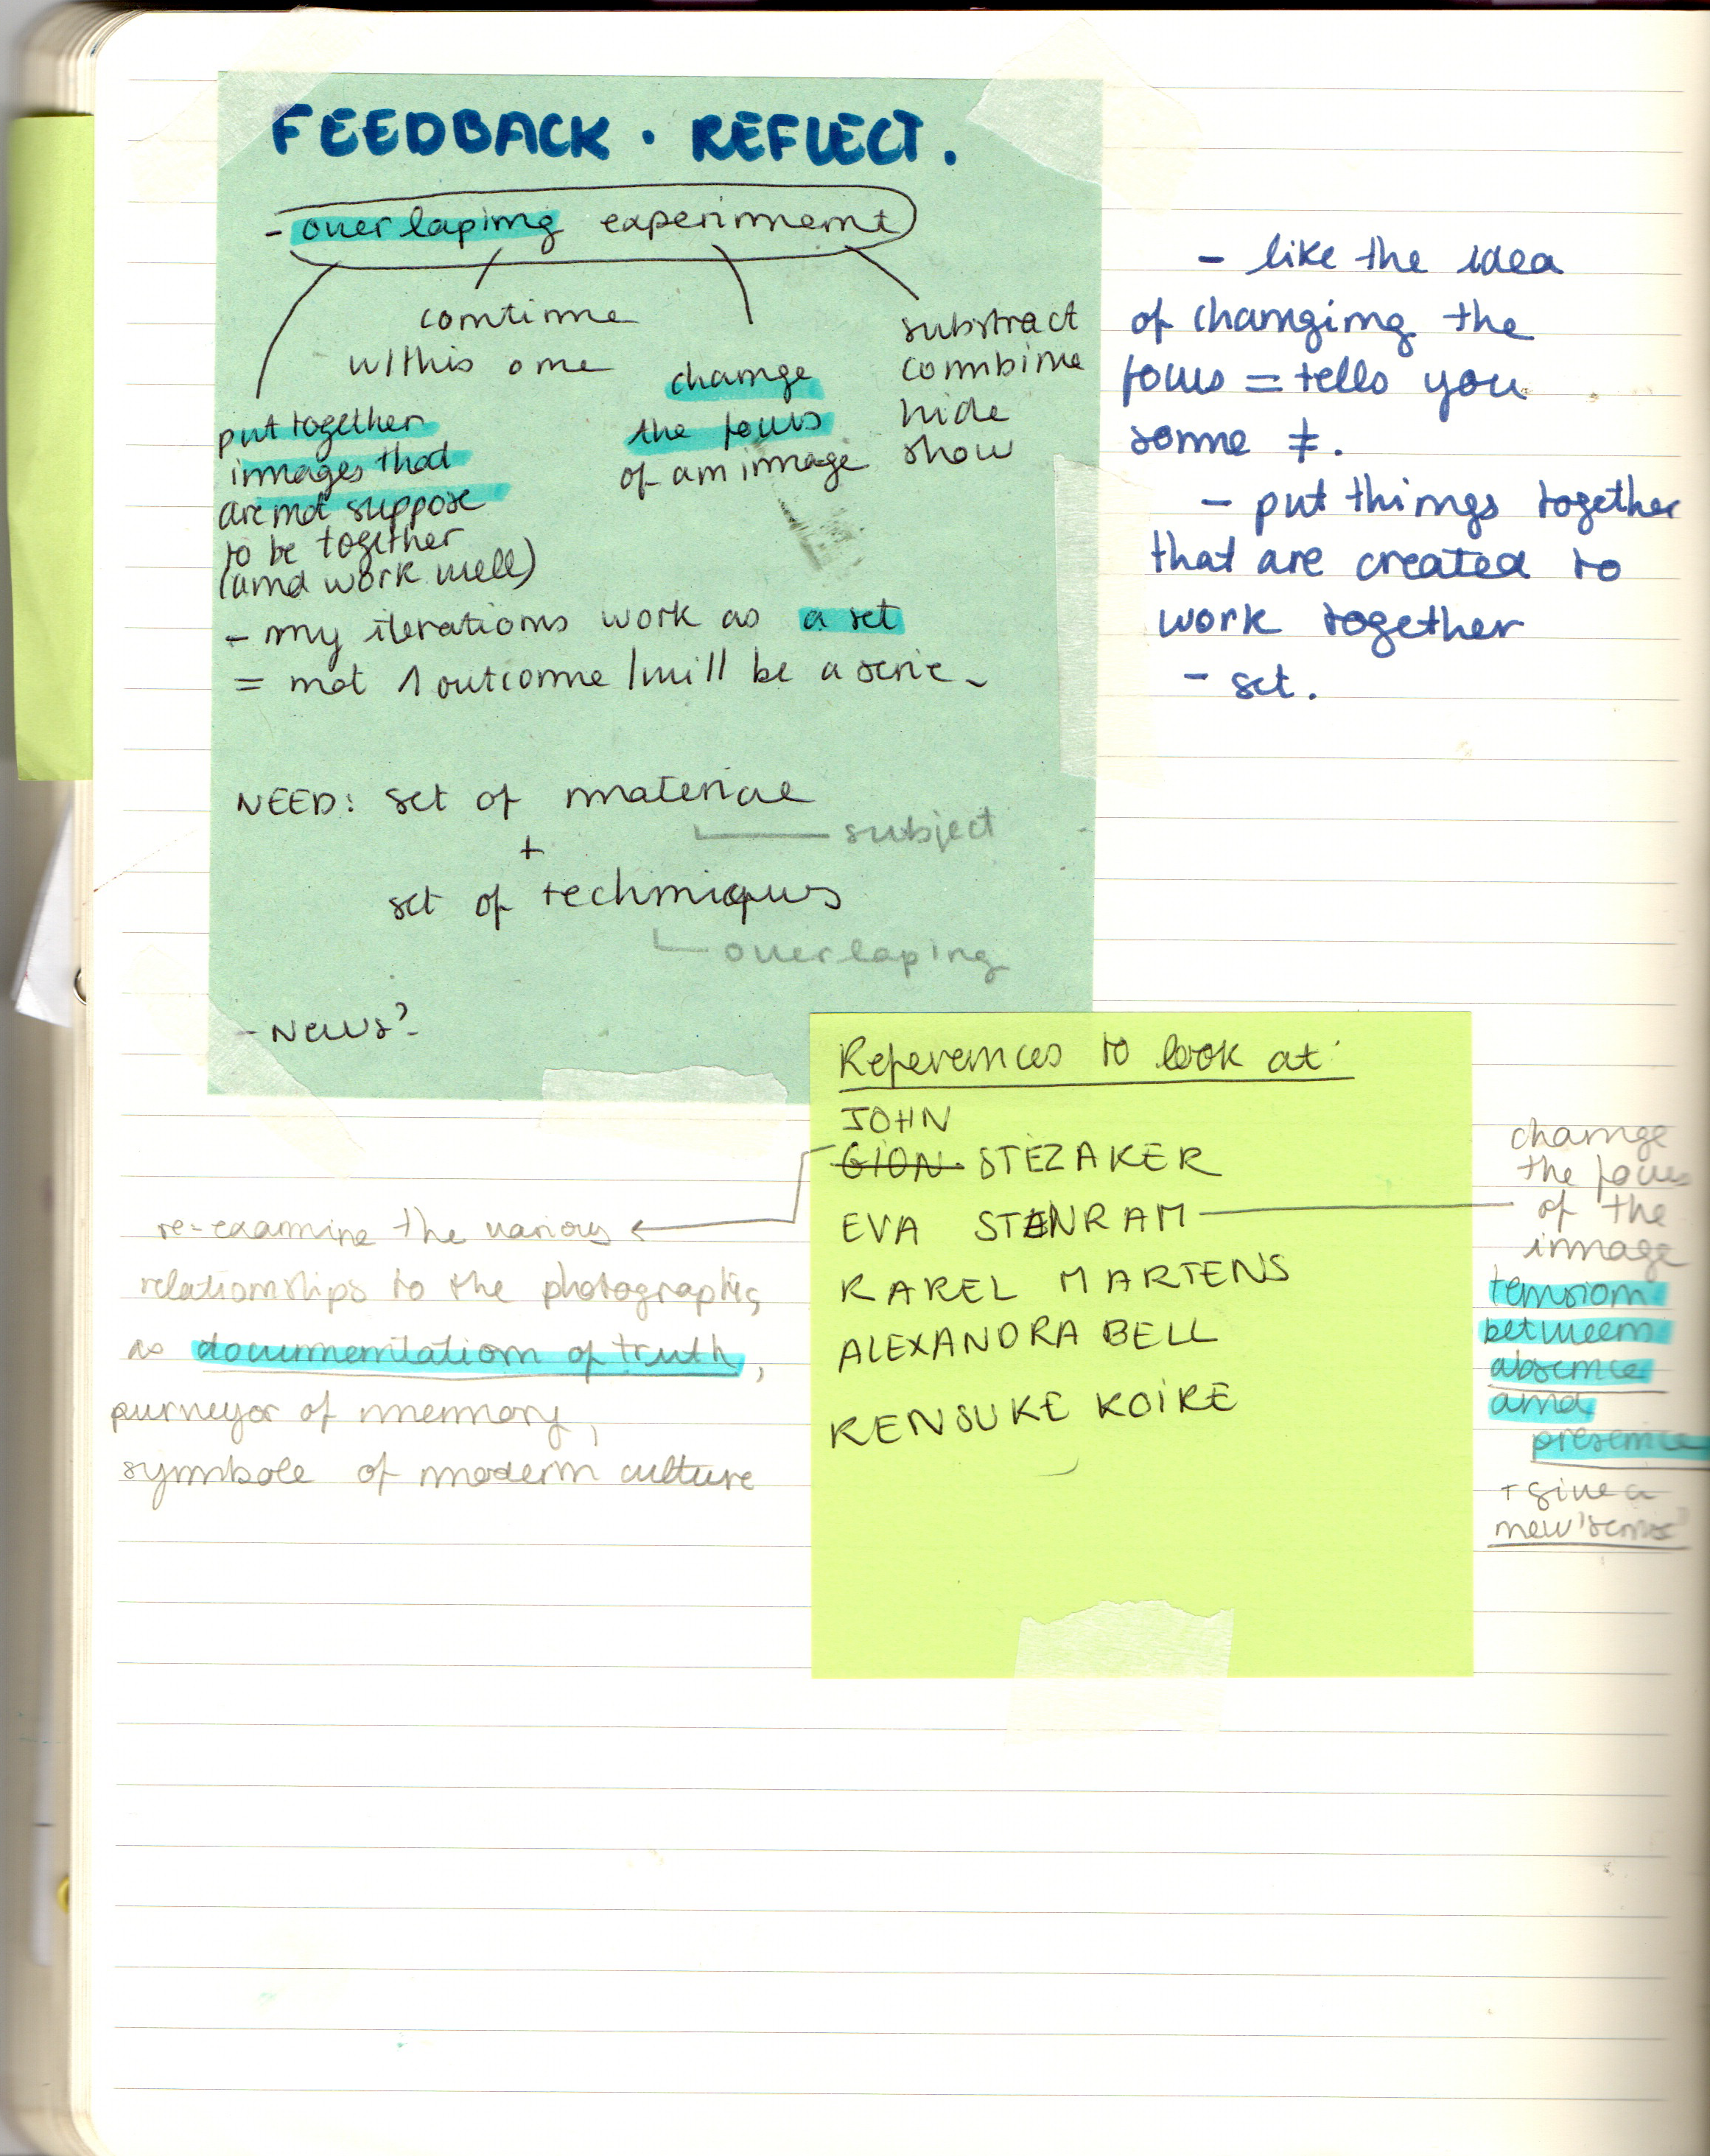 FEEDBACK · REFLECT.
- overlaping experiment
continue
w/this one
put together
images that
are not suppose
to be together
(and work well)
change
the focus
of an image
substract
combine
hide
show
- my iterations work as a set
= not 1 outcome / will be a serie -
NEED: set of materiae
subject
+
set of techniques
overlaping
- News?
- like the idea
of changing the
focus = tells you
some ≠.
- put things together
that are created to
work together
- set.
References to look at:
JOHN
GION STEZAKER
EVA STENRAM
KAREL MARTENS
ALEXANDRA BELL
KENSUKE KOIKE
re-examine the various
relationships to the photographic
as documentation of truth,
purveyor of memory,
symbole of modern culture
change
the focus
of the
image
tension
between
absence
and
presence
+ give a
new 'sense'